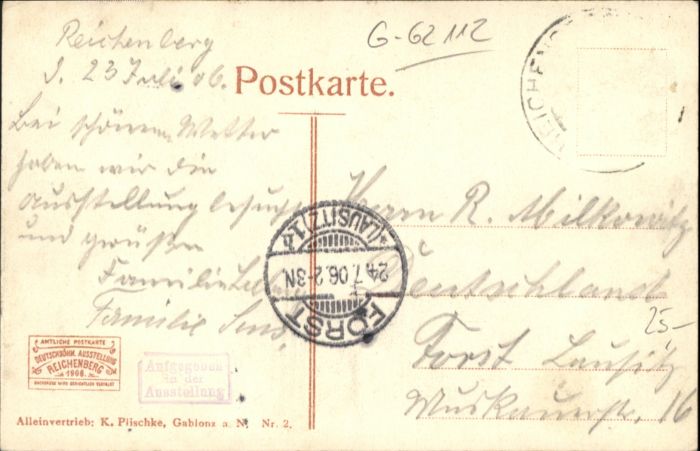 Reichenberg
23 Juli 06.
G-62112
Postkarte.
REICHENB
Bei schönem Wetter
haben wir die
Ausstellung besucht
und grüßen
Familie
Familie
Herrn R. Milkowitz
Deutschland
Forst Lausitz
Muskauerstr. 16
25-
FORST
24.7.06.2-3N.
*(LAUSITZ)1.
AMTLICHE POSTKARTE
DEUTSCHBÖHM. AUSSTELLUNG
REICHENBERG
1906.
Aufgegeben
in der
Ausstellung
Alleinvertrieb: K. Plischke, Gablonz a. N. Nr. 2.